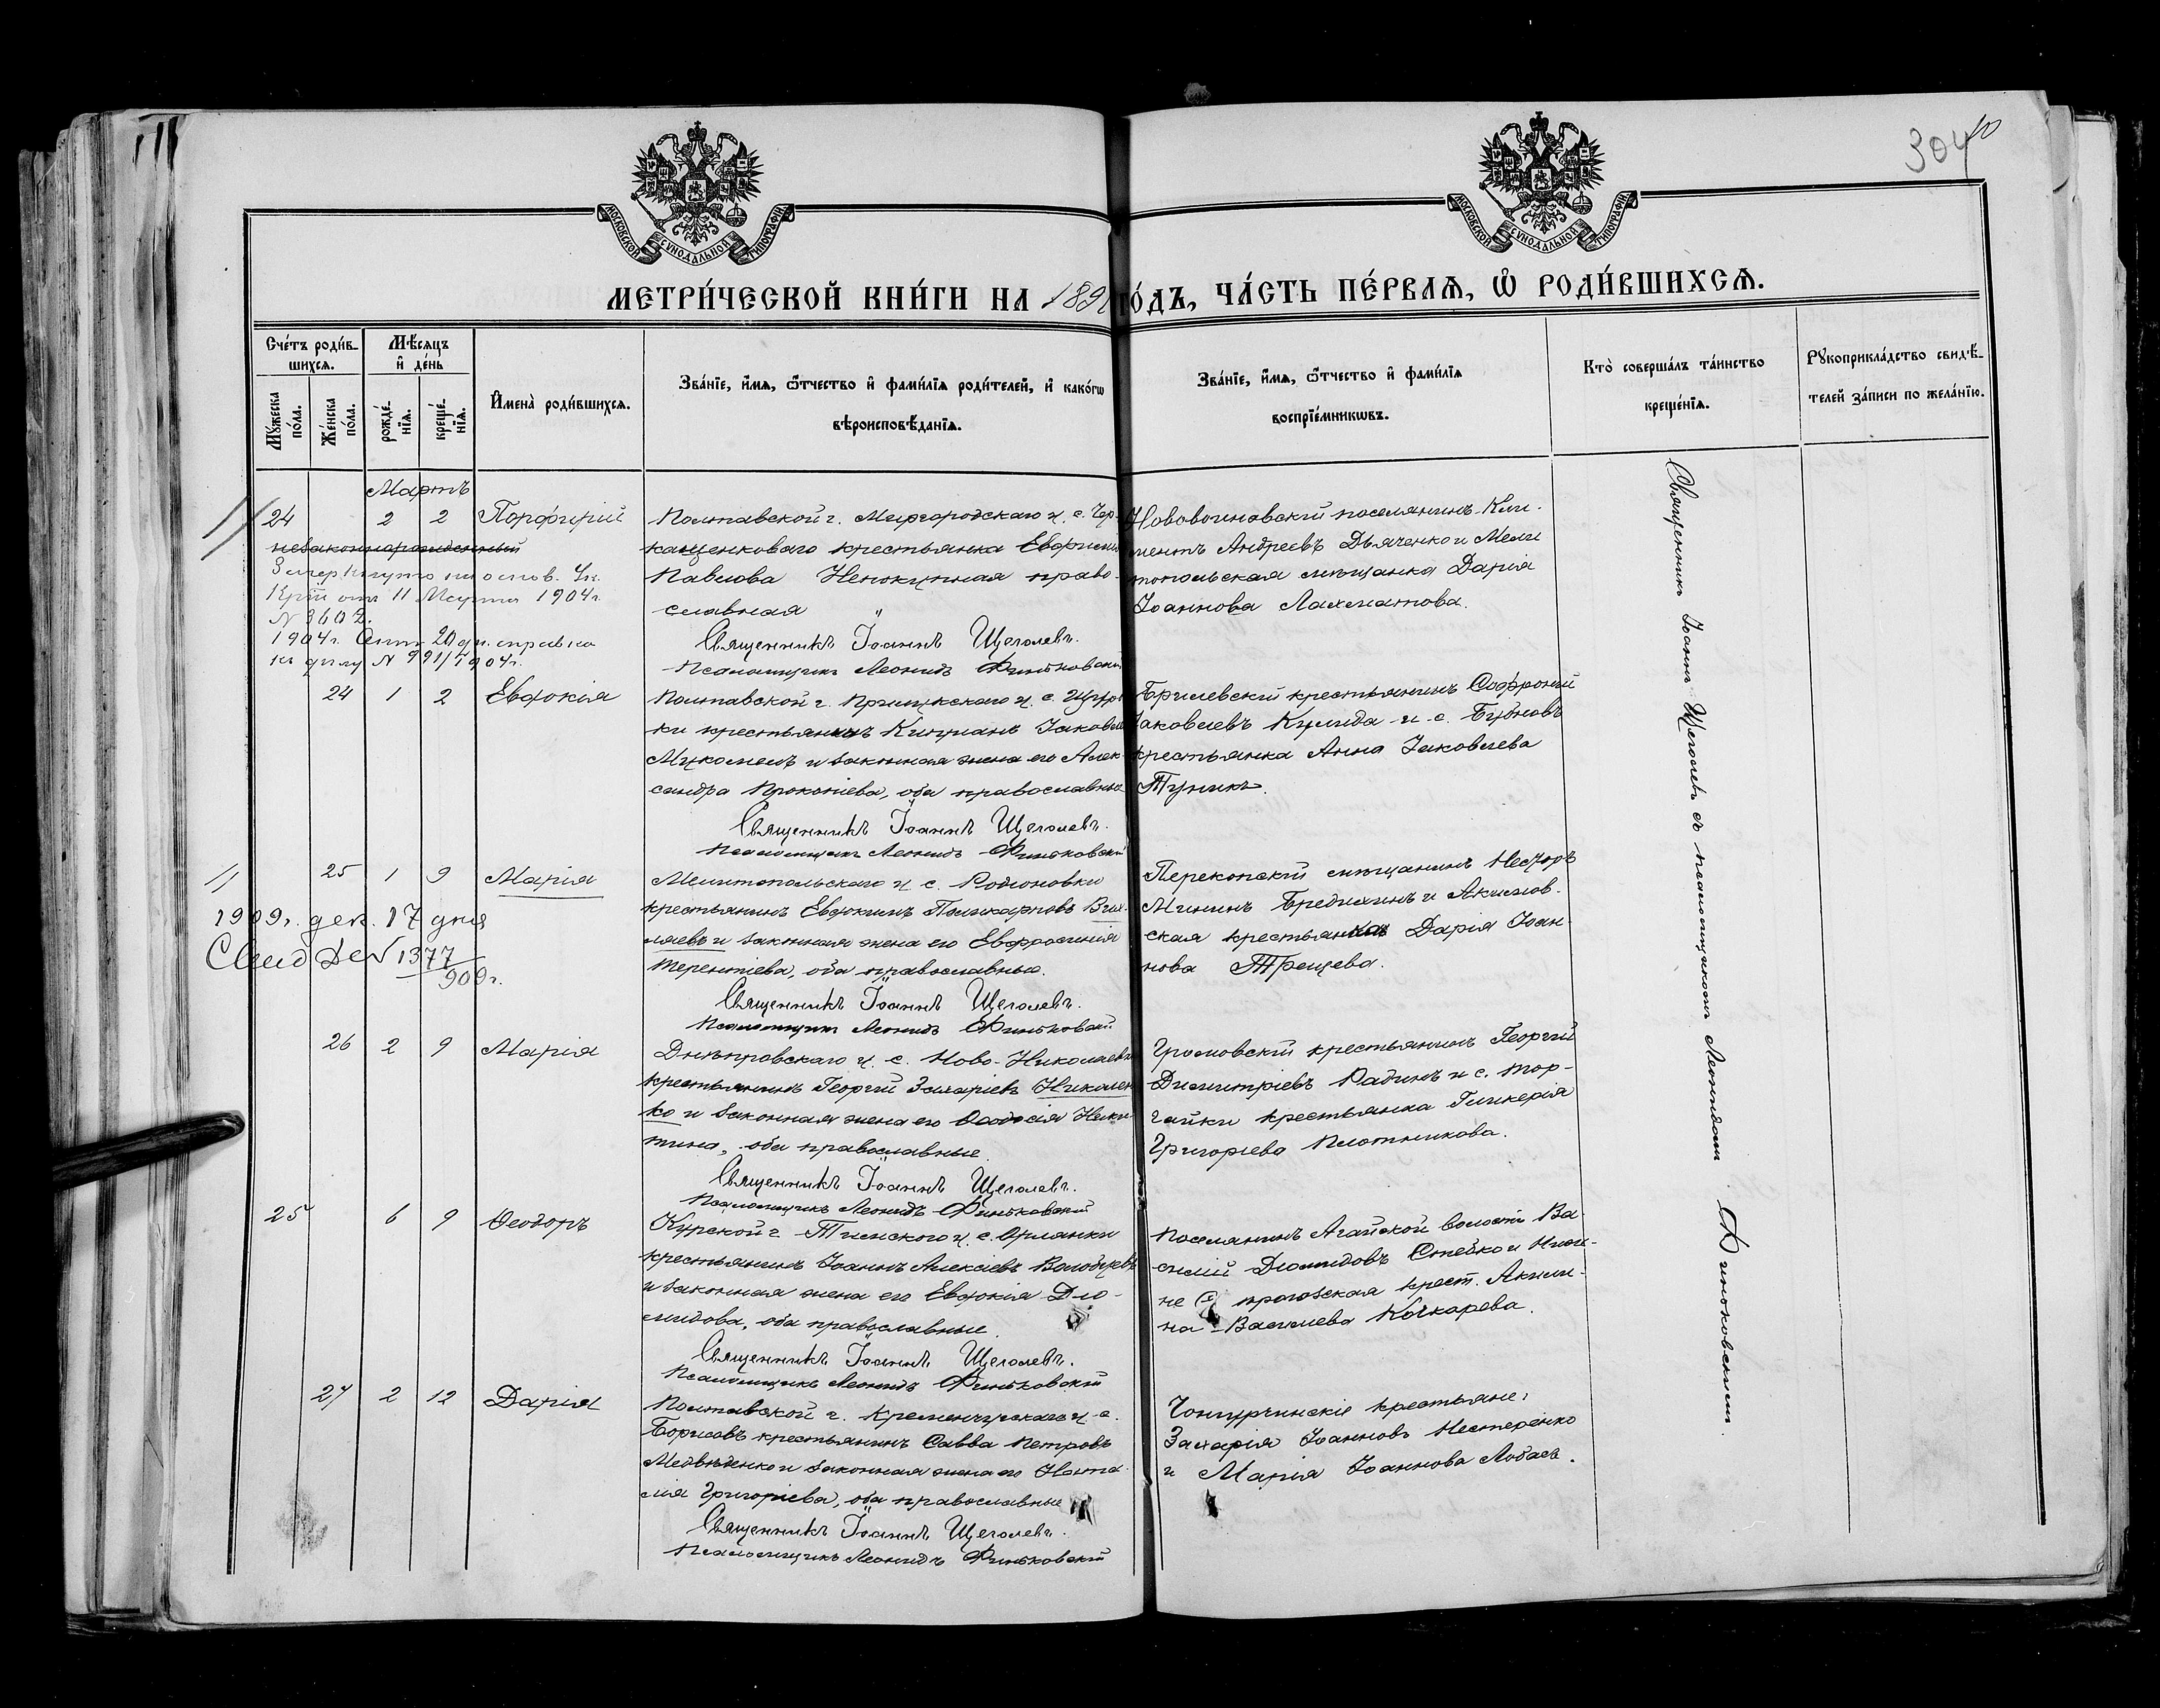 МОСКОВСКОЙ СѴНОДАЛЬНОЙ ТИПОГРАФІИ
МОСКОВСКОЙ СѴНОДАЛЬНОЙ ТИПОГРАФІИ
304
МЕТРИ́ЧЕСКОЙ КНИ́ГИ НА 189 ГО́ДЪ, ЧА́СТЬ ПЕ́РВАѦ, Ѽ РОДИ́ВШИХСѦ.
Сче́тъ роди́в-
шихсѧ.
Мꙋ́жеска по́ла.
Же́нска по́ла.
Мѣ́сѧцъ
и҆ де́нь
рожде́-нїѧ.
креще́-нїѧ.
И҆мена̀ роди́вшихсѧ.
Зва́нїе, и҆́мѧ, ѻ҆́тчество и҆ фами́лїѧ роди́телей, и҆ како́гѡ
вѣроисповѣ́данїѧ.
Зва́нїе, и҆́мѧ, ѻ҆́тчество и҆ фами́лїѧ
воспрїе́мникѡвъ.
Кто̀ соверша́лъ та́инство
креще́нїѧ.
Рꙋкоприкла́дство свидѣ́-
телей за́писи по жела́нїю.
Мартъ
24 2 2 Порфирій
незаконнорожденный
Зачеркнуто на основ. Ук.
отъ 11 Марта 1904 г.
N 3602.
1904 г. 20 дн. справка
къ дѣлу N 991/1904 г.
Полтавской г. Миргородскаго у. с. Чер-
кащенковаго крестьянка
Павлова право-
славная
Священникъ Іоаннъ Щеголевъ.
Псаломщикъ Леонидъ Финьковскій
Нововоиновскій поселянинъ Кли-
ментъ Андреевъ Дьяченко и Мели
топольская мѣщанка Дарія
Іоаннова Лахматова.
24 1 2 Евдокія
Полтавской г. Прилукскаго у. с.
ки крестьянинъ Кипріанъ Іаковлевъ
и законная жена его Алек-
сандра Прокопіева, оба православные
Священникъ Іоаннъ Щеголевъ.
Псаломщикъ Леонидъ Финьковскій
Брилевскій крестьянинъ Софроній
Іаковлевъ Кулида и с. Бубновъ
крестьянка Анна Іаковлева
25 1 9 Марія
1909 г. дек. 17 дня
Свид № 1377
909 г.
Мелитопольскаго у с. Родіоновки
крестьянинъ Евдокимъ Поликарповъ
ляевъ и законная жена его Евфросинія
Терентіева, оба православные.
Священникъ Іоаннъ Щеголевъ.
Псаломщикъ Леонидъ Финьковскій
Перекопскій мѣщанинъ Несторъ
Мининъ Бредихинъ и Акимов-
ская крестьянка Дарія Іоан-
нова Трещева.
26 2 9 Марія
Днѣпровскаго у. с. Ново-Николаевки
крестьянинъ Георгій Захаріевъ Николен
ко и законная жена его Ѳеодосія Ники-
тина, оба православные.
Священникъ Іоаннъ Щеголевъ.
Псаломщикъ Леонидъ Финьковскій
Громовскій крестьянинъ Георгій
Димитріевъ Радинъ и с. Тор-
гайки крестьянка Гликерія
Григоріева Плотникова.
25 6 9 Ѳеодоръ
Курской г. Тимскаго у. с. Орлянки
крестьянинъ Іоаннъ Алексіевъ Володуевъ
и законная жена его Евдокія Дио-
мидова, оба православные.
Священникъ Іоаннъ Щеголевъ.
Псаломщикъ Леонидъ Финьковскій
Поселянинъ Агайской волости Ва-
силій Діомидовъ Стебко и Ниж-
не крест. Акили-
на Василиева Кочкарева.
27 2 12 Дарія
Полтавской г. Кременчугскаго у. с.
Борисовъ крестьянинъ Савва Петровъ
Медвѣденко и законная жена его Ната
лія Григоріева, оба православные
Священникъ Іоаннъ Щеголевъ.
Псаломщикъ Леонидъ Финьковскій
Чонгурчинскіе крестьяне:
Захарія Іоанновъ Нестеренко
и Марія Іоаннова Лобасъ.
Священникъ Іоаннъ Щеголевъ съ псаломщикомъ Леонидомъ Финьковскимъ.